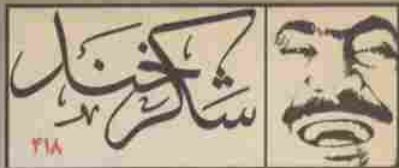 شاکر خند
۴۱۸